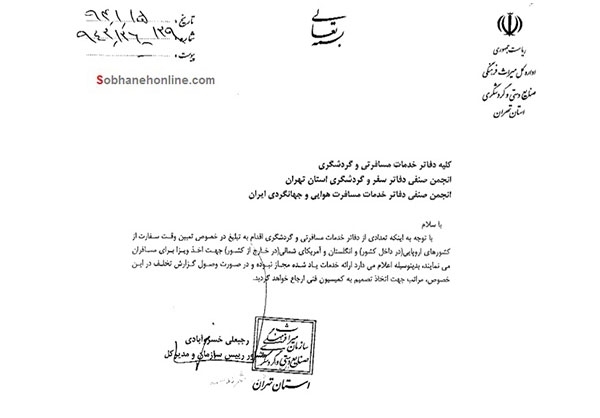 بسمه تعالی
تاریخ:
شماره
پیوست:
Sobhanehonline.com
ریاست جمهوری
اداره کل میراث فرهنگی
صنایع دستی و گردشگری
استان تهران
کلیه دفاتر خدمات مسافرتی و گردشگری
انجمن صنفی دفاتر سفر و گردشگری استان تهران
انجمن صنفی دفاتر خدمات مسافرت هوایی و جهانگردی ایران
با سلام
با توجه به اینکه تعدادی از دفاتر خدمات مسافرتی و گردشگری اقدام به تبلیغ در خصوص تعیین وقت سفارت از
کشورهای اروپایی(در داخل کشور) و انگلستان و آمریکای شمالی(در خارج از کشور) جهت اخذ ویزا برای مسافران
می نمایند، بدینوسیله اعلام می دارد ارائه خدمات یاد شده مجاز نبوده و در صورت وصول گزارش تخلف در این
خصوص، مراتب جهت اتخاذ تصمیم به کمیسیون فنی ارجاع خواهد گردید.
رجبعلی خسروآبادی
رییس سازمان و مدیرکل
سازمان میراث فرهنگی
صنایع دستی و گردشگری
استان تهران